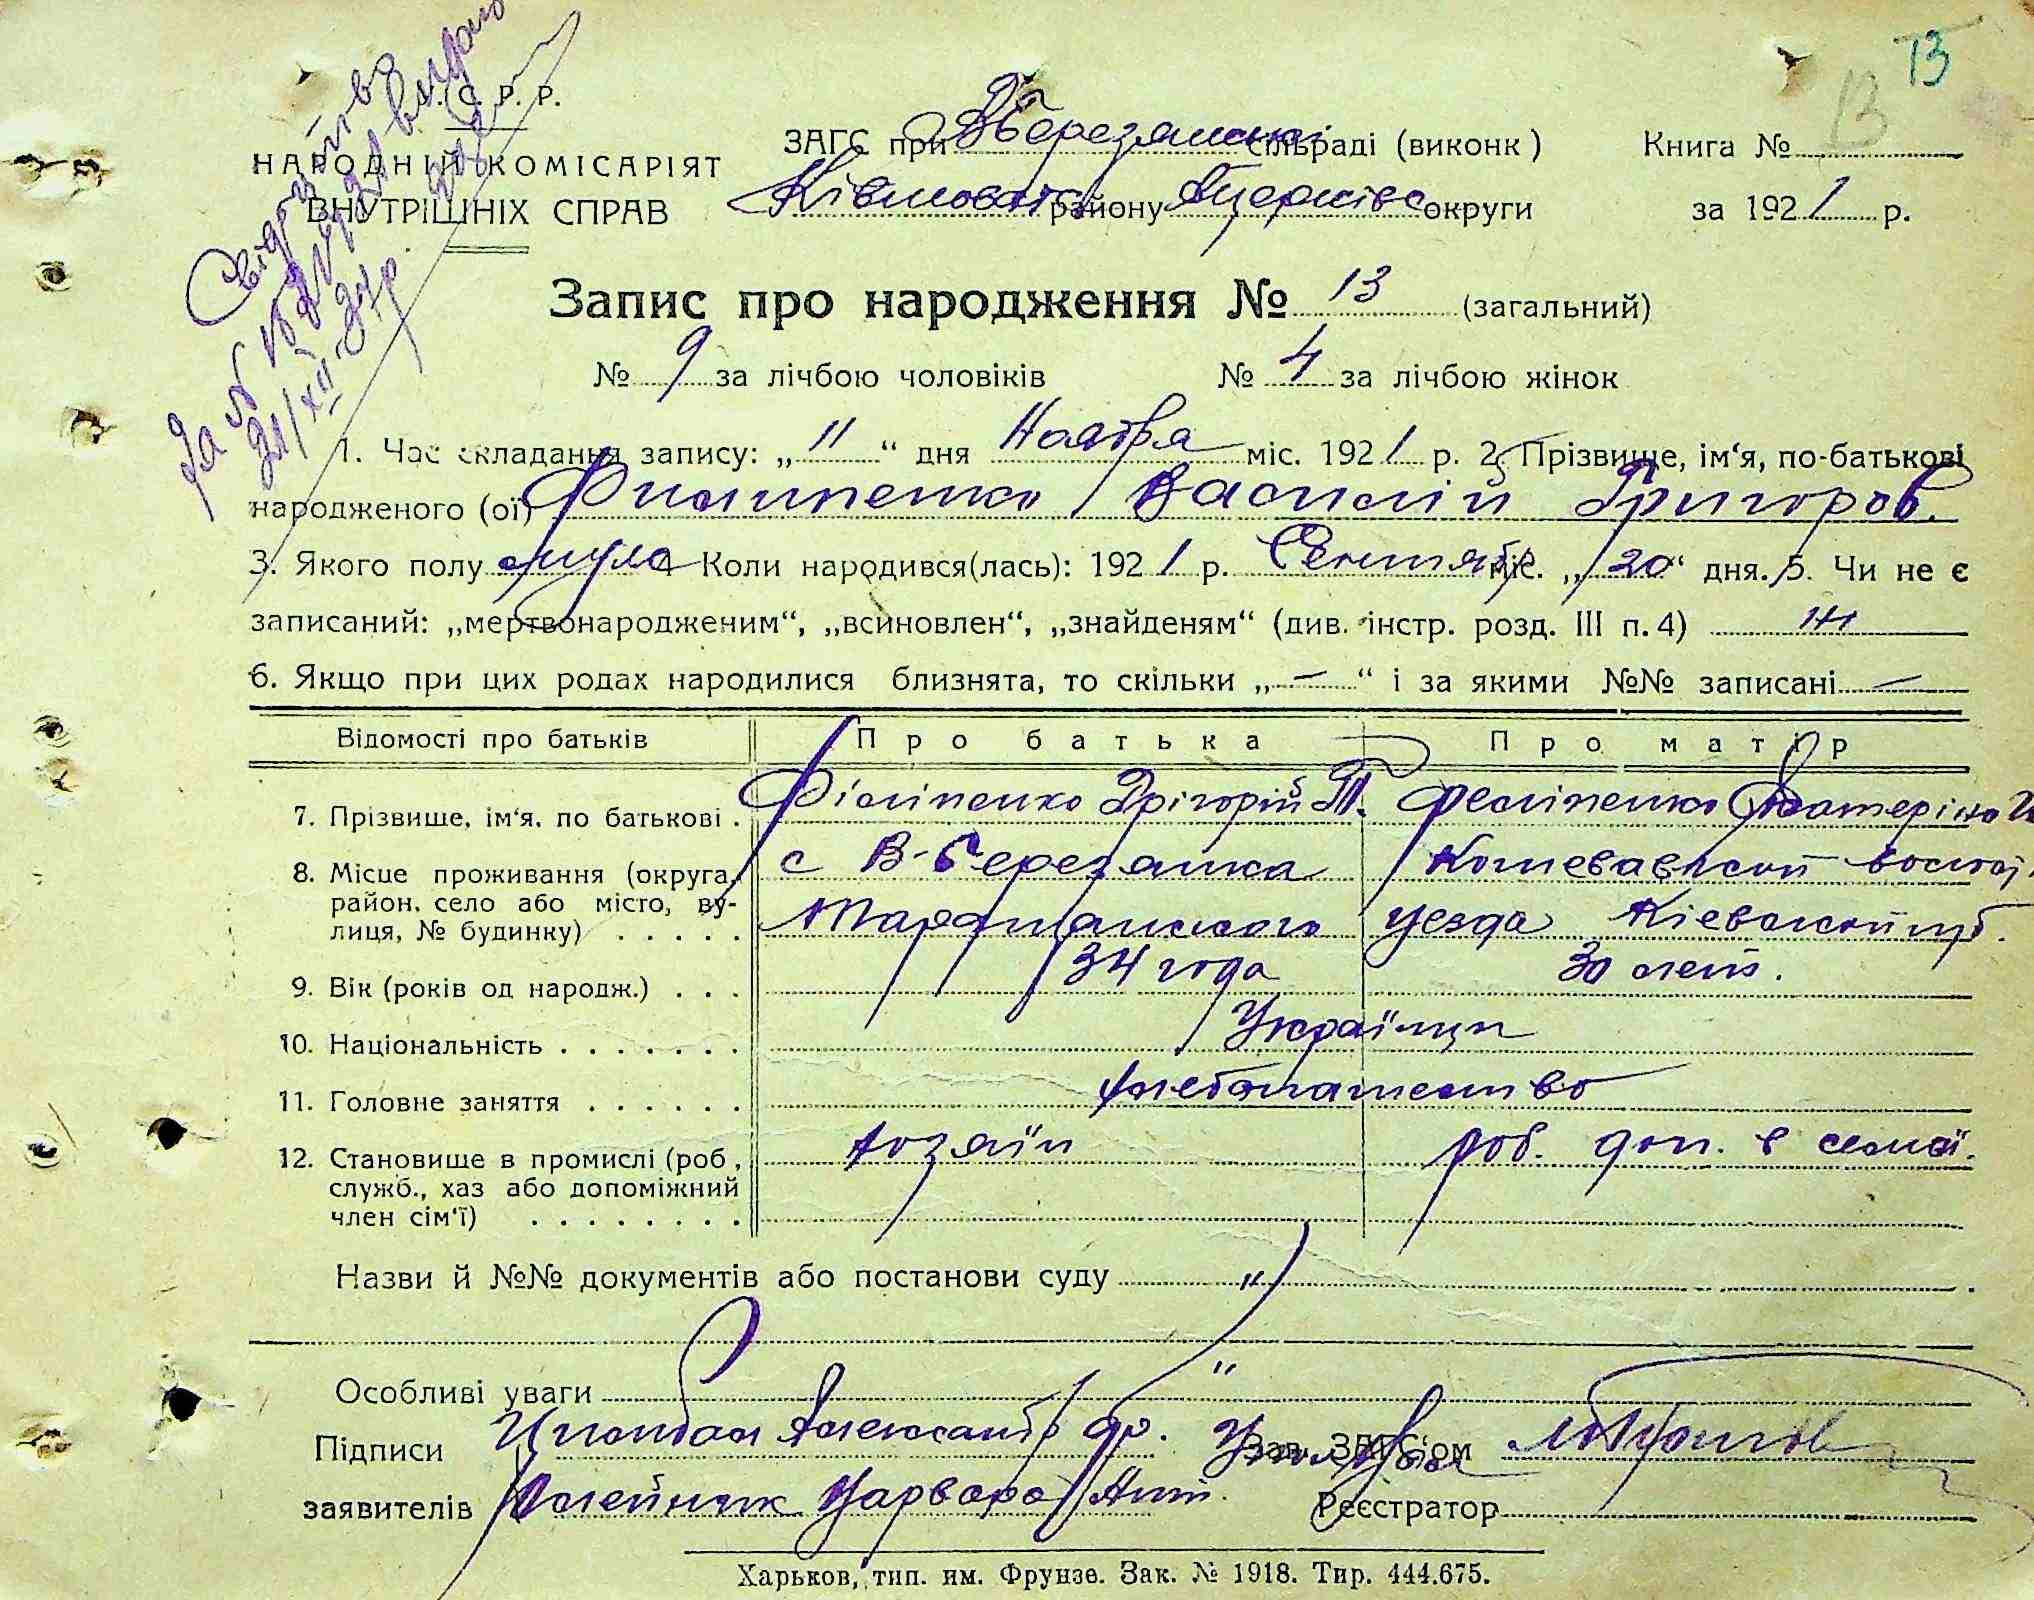 13
13
С. Р. Р.
НАРОДНІЙ КОМІСАРІЯТ
ВНУТРІШНІХ СПРАВ
ЗАГС при ВБерезянські сільраді (виконк)
району Бцерківс округи
Книга №
за 1921 р.
за № 21/XII 24 р.
Запис про народження № 13 (загальний)
№ 9 за лічбою чоловіків № 4 за лічбою жінок
1. Час складання запису: „11“ дня Ноября міс. 1921 р. 2. Прізвище, ім‘я, по-батькові
народженого (ої) Филипенко Василій Григоров.
3. Якого полу муж 4 Коли народився(лась): 1921 р. Сентябр міс. „20“ дня. 5. Чи не є
записаний: „мертвонародженим“, „всиновлен“, „знайденям“ (див. інстр. розд. III п. 4) ні
6. Якщо при цих родах народилися близнята, то скільки „—“ і за якими №№ записані —
Відомості про батьків Про батька Про матір
7. Прізвише, ім‘я, по батькові . Філіпенко Грігорій Т. Феліпенко Катеріна И
8. Місце проживання (округа, с В-Березянка волост,
район, село або місто, ву- Таращанского уезда Кіевской губ.
лиця, № будинку) . . . . .
9. Вік (років од народж.) . . . 34 года 30 лет.
10. Національність . . . . . . . Українци
11. Головне заняття . . . . . . Хлебопашество
12. Становише в промислі (роб, хозяїн роб. доп. в семьї.
служб., хаз або допоміжний
член сім‘ї) . . . . . . . .
Назви й №№ документів або постанови суду "
Особливі уваги "
Підписи Александр Зав. ЗАГС‘ом
заявителів Олейник Варвара Реєстратор
Харьков, тип. им. Фрунзе. Зак. № 1918. Тир. 444.675.